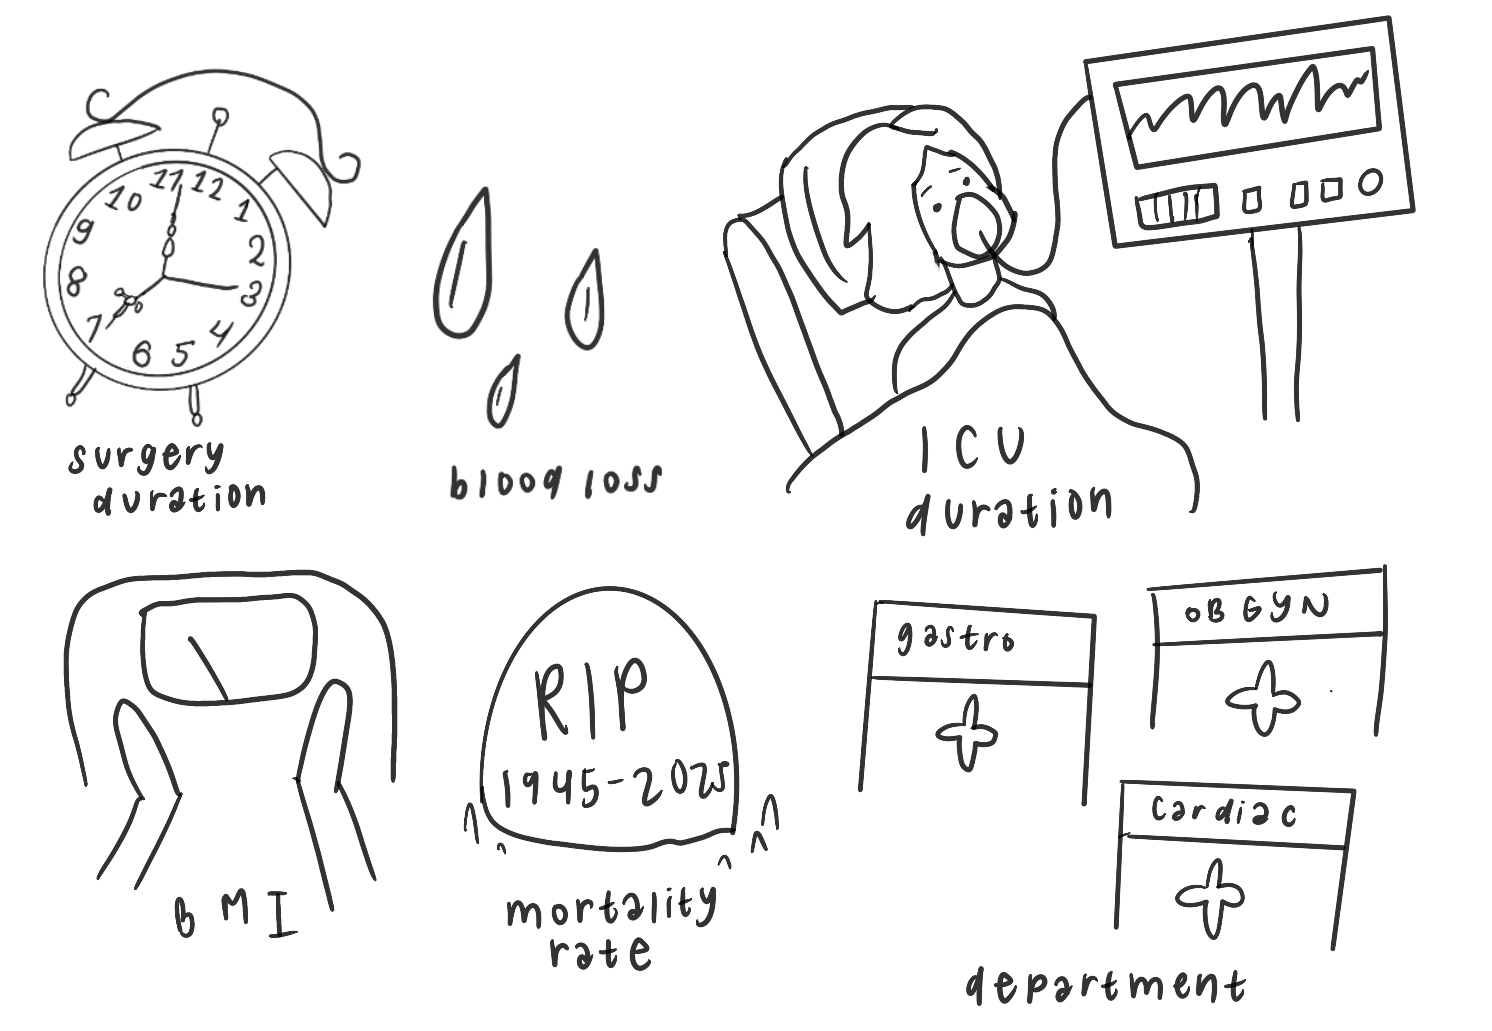 11 12
10 1
9 2
8 3
7 4
6 5
surgery
duration
blood loss
ICU
duration
BMI
RIP
1945-2025
mortality
rate
gastro
OBGYN
Cardiac
department